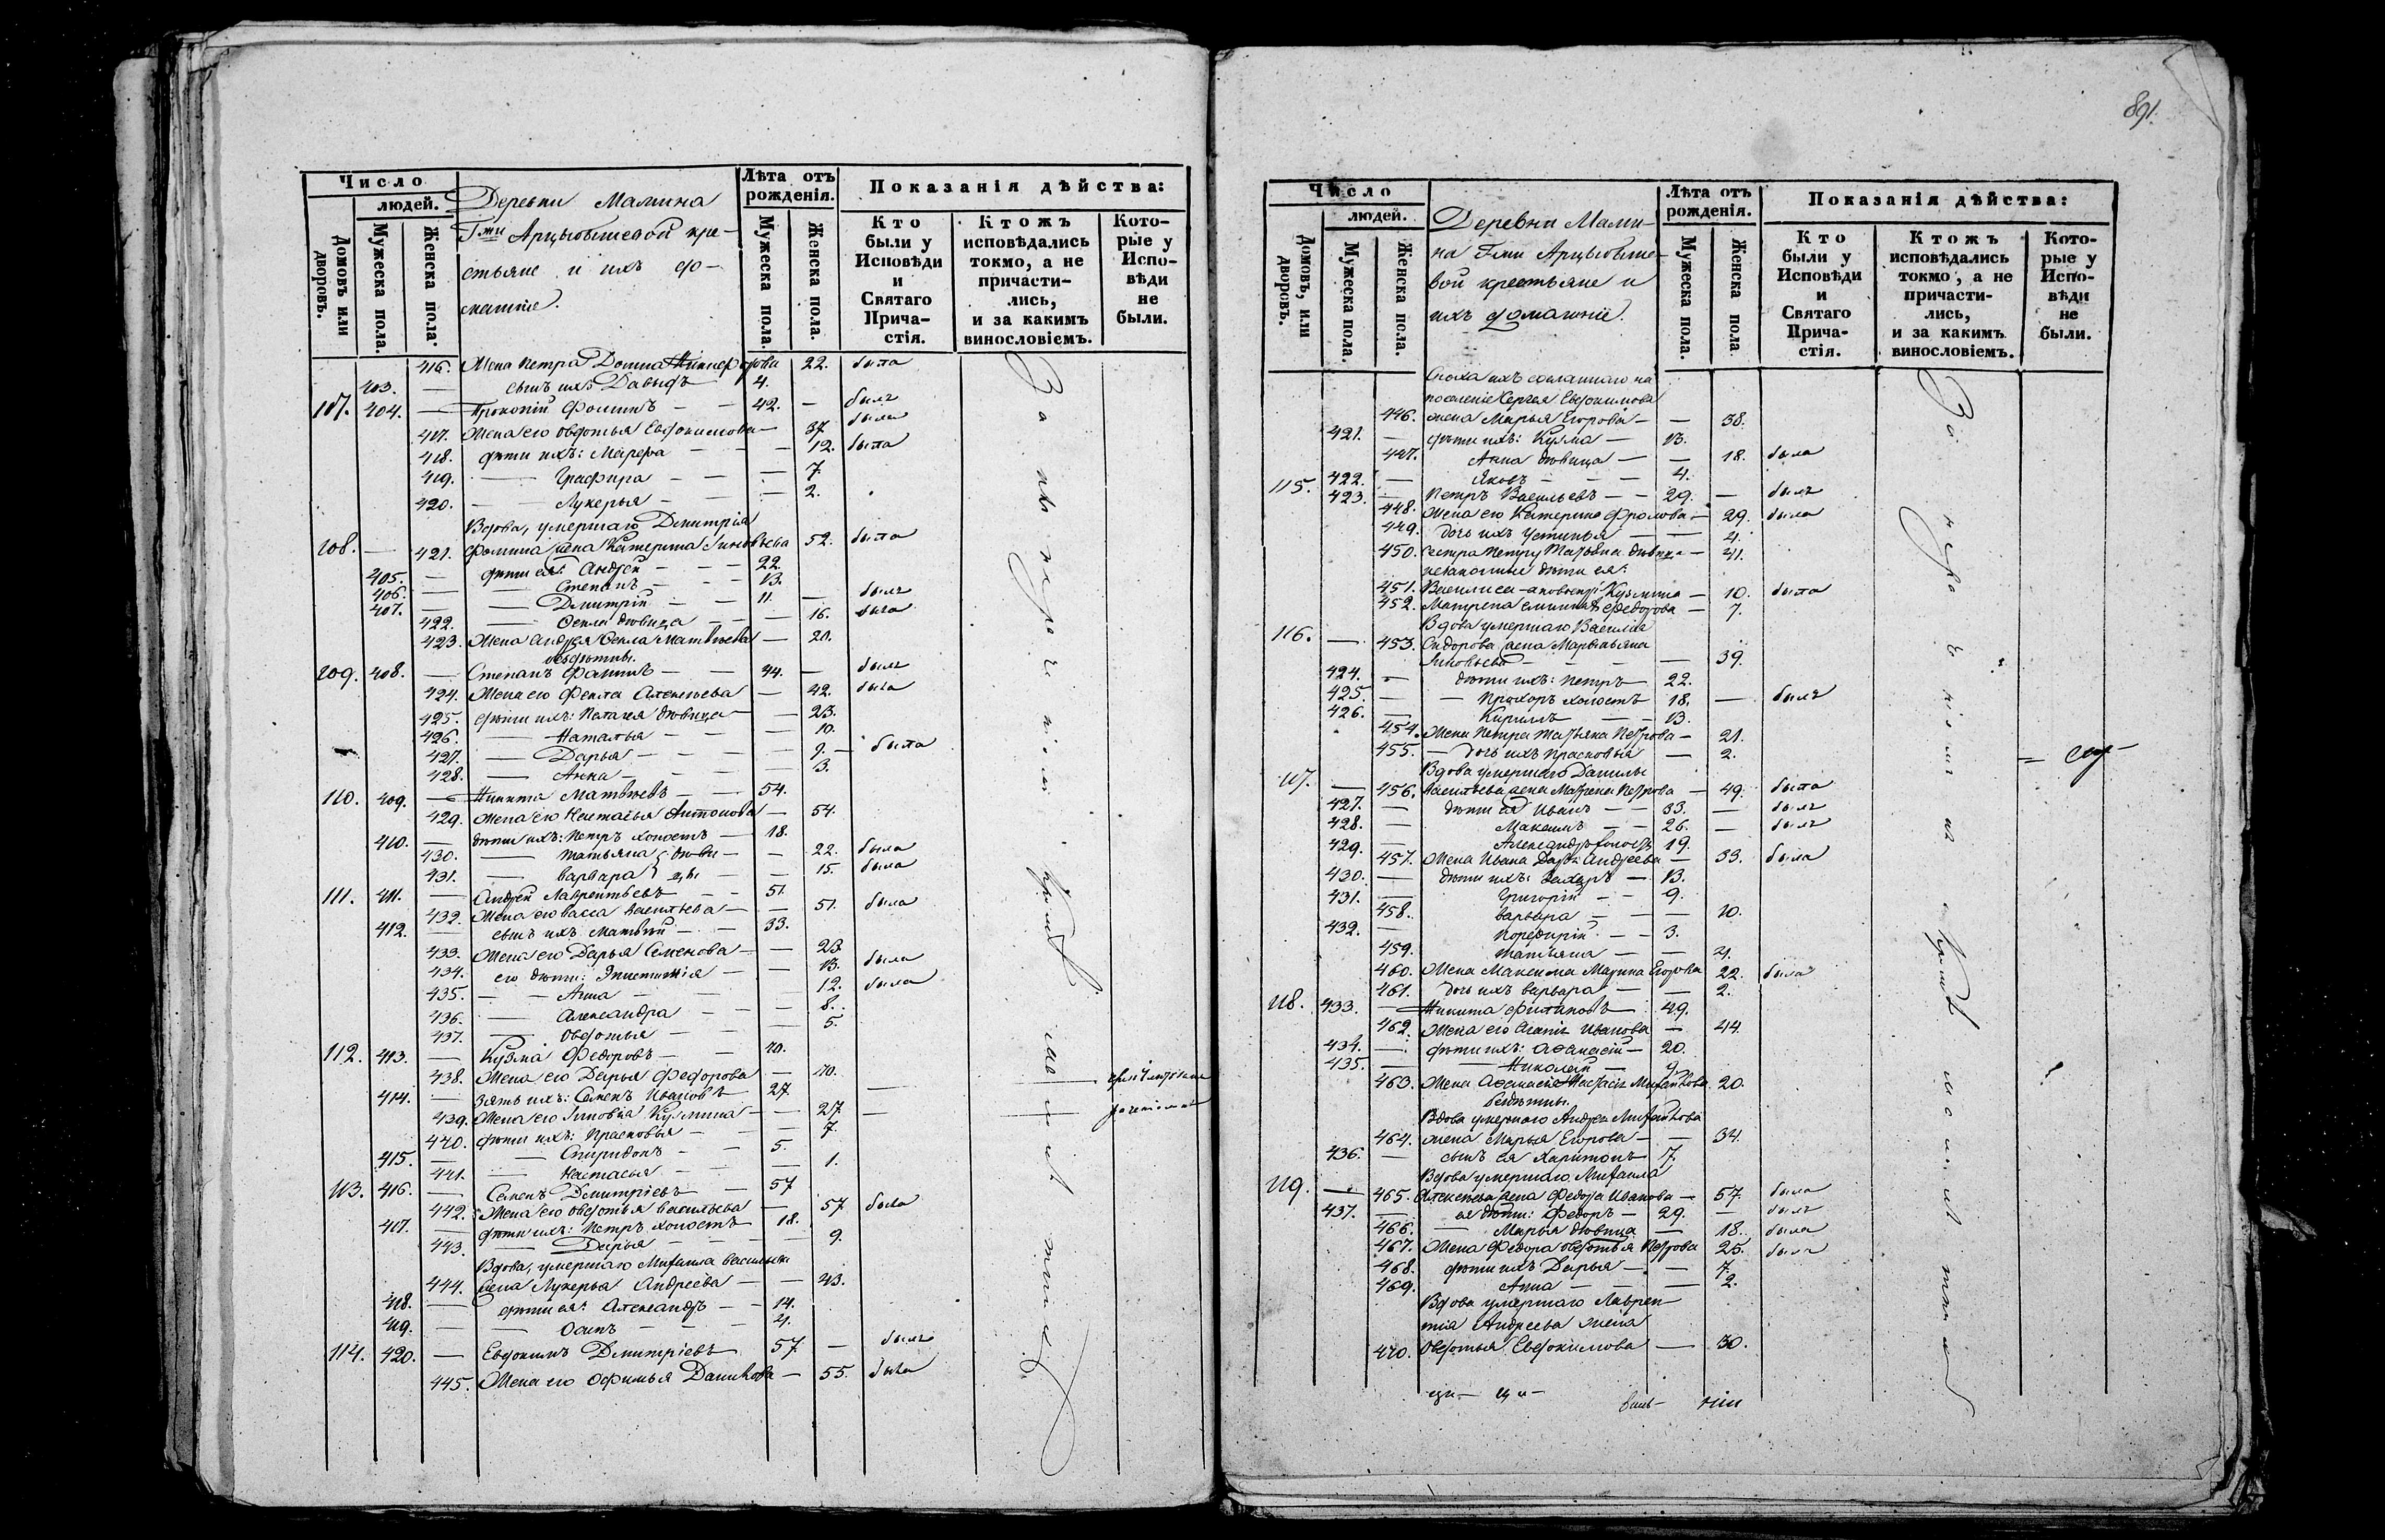 Число
людей.
Домовъ или дворовъ.
Мужеска пола.
Женска пола.
Деревни Мамина
Г-жи Арцыбышевой кре-
стьяне и ихъ до-
машніе.
Лѣта отъ рожденія.
Мужеска пола.
Женска пола.
Показанія дѣйства:
Кто были у Исповѣди и Святаго Прича-стія.
Ктожъ исповѣдались токмо, а не причасти-лись, и за какимъ винословіемъ.
Кото-рые у Испо-вѣди не были.
416. Жена Петра Домна 22. была
403. — сынъ ихъ Давыдъ 4.
107. 404. — Прокопій Фоминъ — — 42. — былъ
417. Жена его Овдотья Евдокимова — 37. была
418. дѣти ихъ: Марѳа — — — 12. была
419. — Глафира — — — 7.
420. — Лукерья — — — 2.
Вдова, умершаго Дмитрія
108. — 421. Фомина жена Катерина Зиновьева 52. была
405. — дѣти ея: Андрей — — — 22.
406. — — Степанъ — — — 13.
407. — — Дмитрій — — 11. — былъ
422. — Ѳекла дѣвица — — — 16. была
423. Жена Андрея Ѳекла Матвѣева — 20.
бездѣтны.
109. 408. — Степанъ Фоминъ — — 44. — былъ
424. Жена его Фекла Алексѣева — 42. была
425. дѣти ихъ: Пелагея дѣвица — — 23.
426. — Наталья — — — 10.
427. — Дарья — — — 9. — была
428. — Анна — — — 3.
110. 409. — Никита Матвѣевъ — — 54.
429. Жена его Настасья Антонова — 54.
410. — дѣти ихъ: Петръ холостъ — 18.
430. — Татьяна } дѣви- — 22. была
431. — Варвара } цы — — 15. была
111. 411. — Андрей Лаврентьевъ — — 51.
432. Жена его Васса Васильева — — 51. была
412. — сынъ ихъ Матвѣй — — 33.
433. Жена его Дарья Семенова — — 23.
434. его дѣти: Эпистимія — — 13. была
435. — — Анна — — 12. была
436. — Александра — — — 8.
437. — Овдотья — — — 5.
112. 413. — Кузма Федоровъ — — 70.
438. Жена его Дарья Федорова — 70.
414. — зять ихъ: Семенъ Ивановъ 27. —
439. Жена его Зиновія Кузмина — — 27. —
440. дѣти ихъ: Прасковья — — — 7.
415. — — Спиридонъ — — 5.
441. — Настасья — — — 1.
113. 416. — Семенъ Дмитріевъ — 57.
442. Жена его Овдотья Васильева — 57. была
417. — дѣти ихъ: Петръ холостъ 18.
443. — Дарья — — — 9.
Вдова, умершаго Михаила Васильева
444. жена Лукерья Андреева — — 43.
418. — дѣти ея: Александръ — — 14.
419. — — Осипъ — — — 4.
114. 420. — Евдокимъ Дмитріевъ 57. — былъ
445. Жена его Офимья Данилова — 55. была
891.
Число
людей.
Домовъ, или дворовъ.
Мужеска пола.
Женска пола.
Деревни Мами-
на Г-жи Арцыбыше-
вой крестьяне и
ихъ домашніе.
Лѣта отъ рожденія.
Мужеска пола.
Женска пола
Показанія дѣйства:
Кто были у Исповѣди и Святаго Прича-стія.
Ктожъ исповѣдались токмо, а не причасти-лись, и за какимъ винословіемъ.
Кото-рые у Испо-вѣди не были.
Сноха ихъ сосланнаго на
поселеніе Сергея Евдокимова
446. жена Марья Егорова — — 38.
421. — дѣти ихъ: Кузма — 13.
447. Анна дѣвица — — 18. была
422. — Яковъ — — — 4.
115. 423. — Петръ Васильевъ — — 29. — былъ
448. Жена его Катерина Фролова — 29. была
449. дочь ихъ Устинья — — 4.
450. сестра Петру Татьяна дѣвица — 41.
незаконные дѣти ея:
451. Василиса Кузмина — 10. была
452. Матрена Федорова — 7.
Вдова умершаго Василія
116. — 453. Сидорова жена Маремьяна
Зиновьева — — — — 39.
424. — дѣти ихъ: Петръ 22.
425. — — Прохоръ холостъ 18. — былъ
426. — Кириллъ — — 13.
454. Жена Петра Татьяна Петрова — 21.
455. — дочь ихъ Прасковья — 2.
Вдова умершаго Данилы
117. — 456. Васильева жена Матрена Петрова — 49. была
427. — дѣти ея Иванъ — — 33. — былъ
428. — Максимъ — — 26. — былъ
429. — Александръ холостъ 19.
457. Жена Ивана Дарья Андреева — 33. была
430. — дѣти ихъ: Захаръ — 13.
431. — Григорій — — 9.
458. Варвара — — — 10.
432. — Порфирій — — 3.
459. Татьяна — — 4.
460. Жена Максима Марина Егорова 22. была
461. дочь ихъ Варвара — — 2.
118. 433. — Никита Филиповъ — 49.
462. Жена его Иванова — 44.
434. — дѣти ихъ: Аѳанасій — 20.
435. — — Николай — 9.
463. Жена Аѳанасія Настасья Михайлова 20.
бездѣтны.
Вдова умершаго Андрея Михайлова
464. жена Марья Егорова — — 34.
436. — сынъ ея Харитонъ 7.
Вдова умершаго Михаила
119. — 465. Алексѣева жена Федора Иванова — 57. была
437. — ея дѣти: Федоръ — 29. — былъ
466. — Марья дѣвица — 18. была
467. Жена Федора Овдотья Петрова 25. была
468. дѣти ихъ Дарья — — 7.
469. Анна — — — 2.
Вдова умершаго Лаврен-
тія Андреева жена
470. Овдотья Евдокимова — 30.